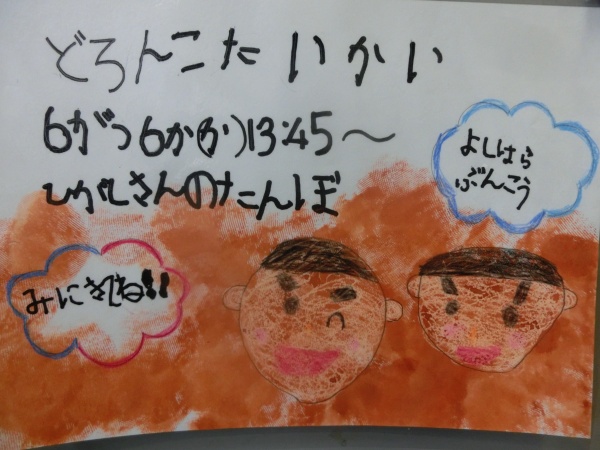 どろんこたいかい
6がつ6か(か)13:45〜
ひがしさんのたんぼ
よしはら
ぶんこう
みにきてね!!